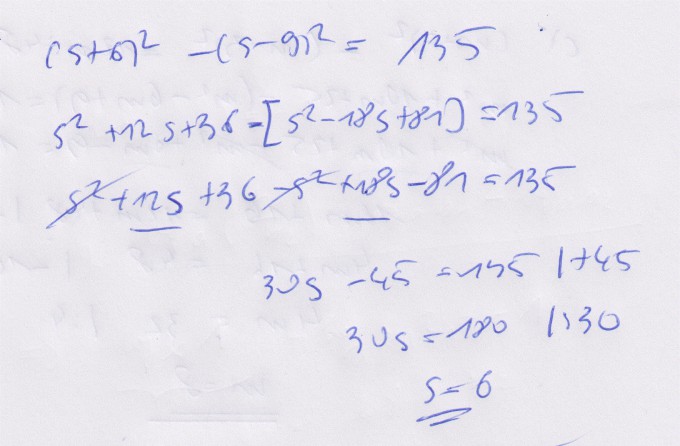 (s+6)² -(s-9)² = 135
s² +12s+36-[s²-18s+81)] =135
s²+12s +36 -s²+18s-81 =135
30s -45 =135 |+45
30s =180 |:30
s=6